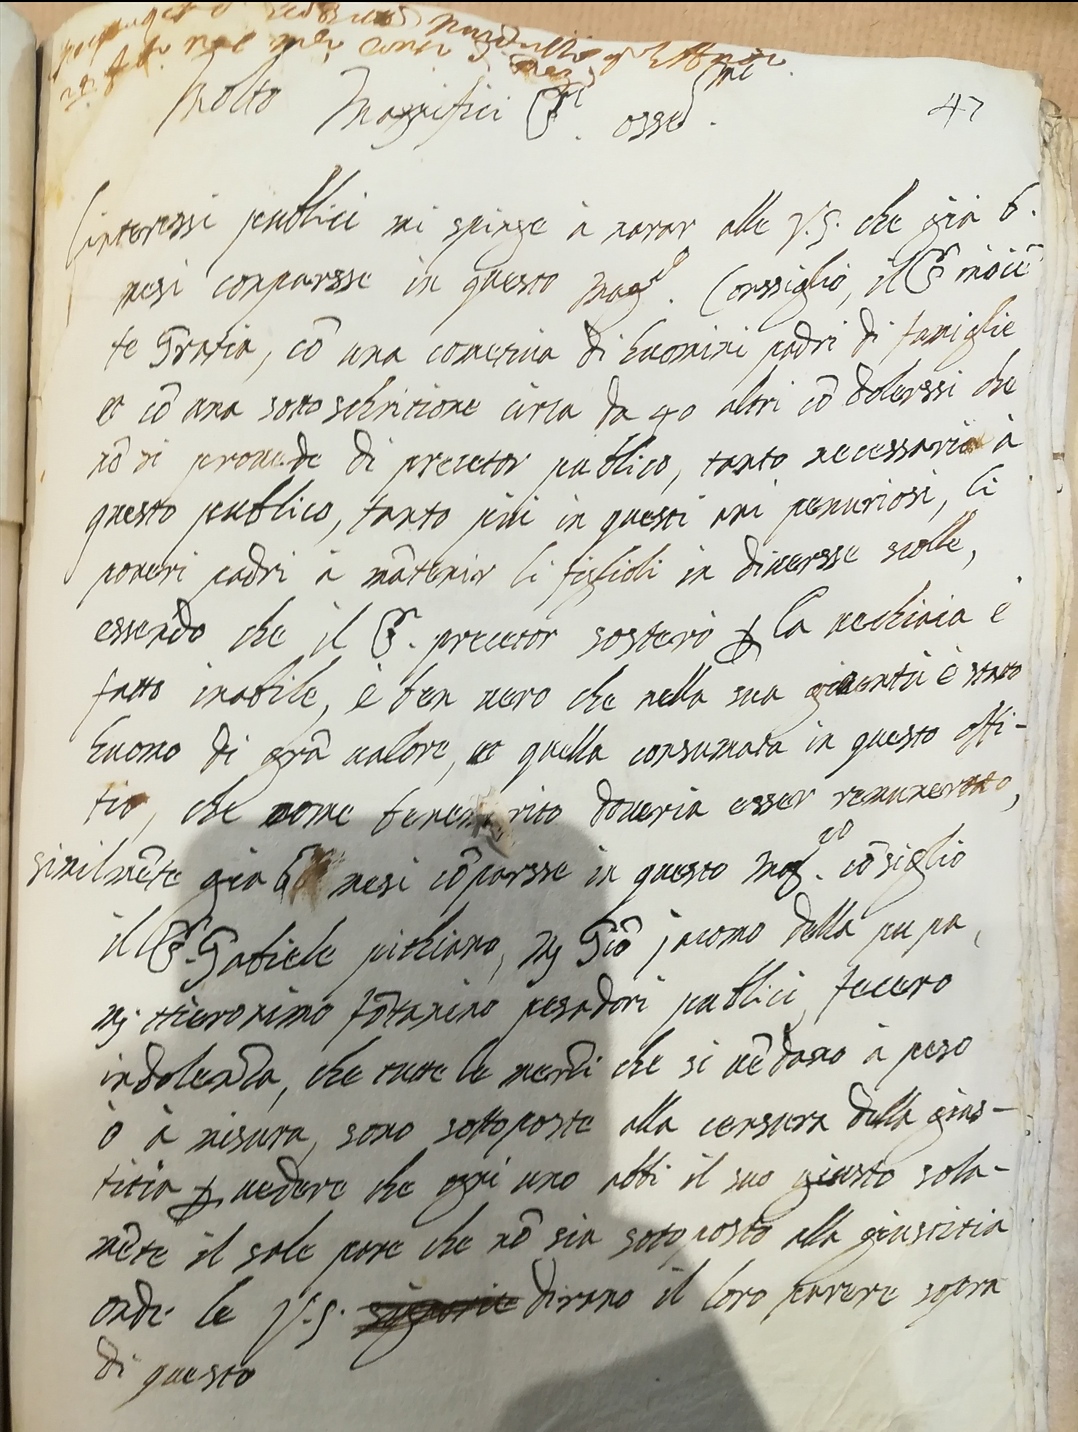 Molto Magnifici S.ri osser.mi
47
L'interessi publici mi spinge à narar alle V.S. che già 6.
mesi comparsse in questo Mag.co Conssiglio, il S.r inocē
te Gratia, cō una cometiva di huomini padri di famiglie
et cō una sotto schritione circa da 40 altri cō dolerssi che
nō si provede di precetor publico, tanto necessario à
questo publico, tanto più in questi ani penuriosi, li
poveri padri à mātenir li figlioli in diversse scolle,
essendo che il S.r precetor sosterō ꝑ la vechiaia è
fatto inabile, è ben vero che nella sua gioventù è stato
huomo di grā valore, et quella consumata in questo offi-
tio, che come benemerito doveria esser remunerato,
similmēte già 6 mesi cōparsse in questo Mag.co cōsiglio
il S.r Gabiele pichiano, mj Giō jacomo della pupa,
mj Hieronimo fōtanino pesadori publici, fecero
indolenza, che tutte le merci che si vēdano à peso
ò à misura, sono sottoposte alla censura della gius-
titia ꝑ vedere che ogni uno abbi il suo giusto sola-
mēte il sale pare che nō sia sotoposto alla giustitia
onde le V.S. dirano il loro parere sopra
di questo